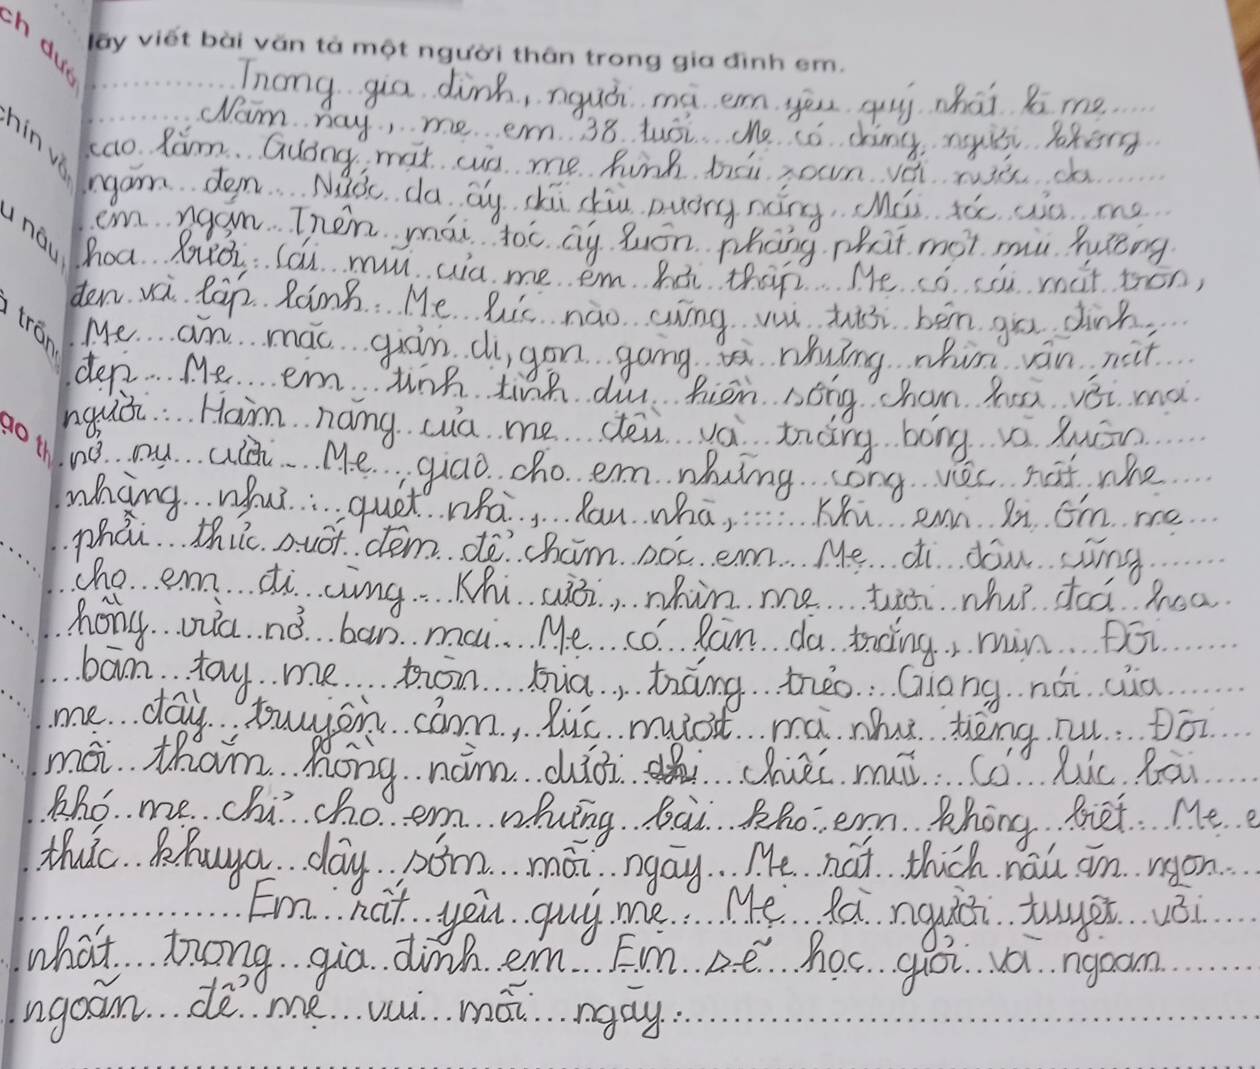 ch dưới
lãy viết bài văn tả một người thân trong gia đình em.
Trong gia đình, người mà em yêu quý nhất là mẹ
Năm nay, mẹ em 38 tuổi. Mẹ có dáng người không
chín vằn
cao lắm. Gương mặt của mẹ hình trái xoan với nước da
ngăm đen. Nước da ấy đãi dầu sương nắng. Mái tóc của mẹ
u nâu,
em ngắn. Trên mái tóc ấy luôn phảng phất một mùi hương
hoa bưởi. Cái mũi của mẹ em hơi thấp. Mẹ có cái mắt tròn,
à trắng
đen và lấp lánh. Mẹ lúc nào cũng vui tươi bên gia đình.
Mẹ ăn mặc giản dị, gọn gàng nhưng nhìn vẫn rất
đẹp. Mẹ em tính tình dịu hiền sống chan hoà với mọi
ạo th
người. Hàm răng của mẹ đều và trắng bóng và luôn
nở nụ cười. Mẹ giao cho em những công việc rất nhẹ
nhàng như: quét nhà, lau nhà,.... Khi em bị ốm mẹ
phải thức suốt đêm để chăm sóc em. Mẹ đi đâu cũng
cho em đi cùng. Khi cười, nhìn mẹ tươi như đoá hoa
hồng vừa nở ban mai. Mẹ có làn da trắng, mịn. Đôi
bàn tay mẹ tròn trịa, trắng trẻo. Giọng nói của
mẹ đầy truyền cảm, lúc mượt mà như tiếng ru. Đôi
môi thắm hồng nằm dưới chiếc mũi. Có lúc bài
khó mẹ chỉ cho em những bài khó em không biết. Mẹ e
thức khuya dậy sớm mỗi ngày. Mẹ rất thích nấu ăn ngon.
Em rất yêu quý mẹ. Mẹ là người tuyệt vời
nhất trong gia đình em. Em sẽ học giỏi và ngoan
ngoãn để mẹ vui mỗi ngày.